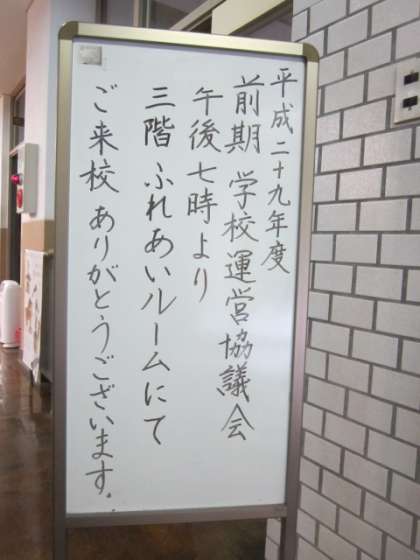 平成二十九年度
前期 学校運営協議会
午後七時より
三階 ふれあいルームにて
ご来校 ありがとうございます.